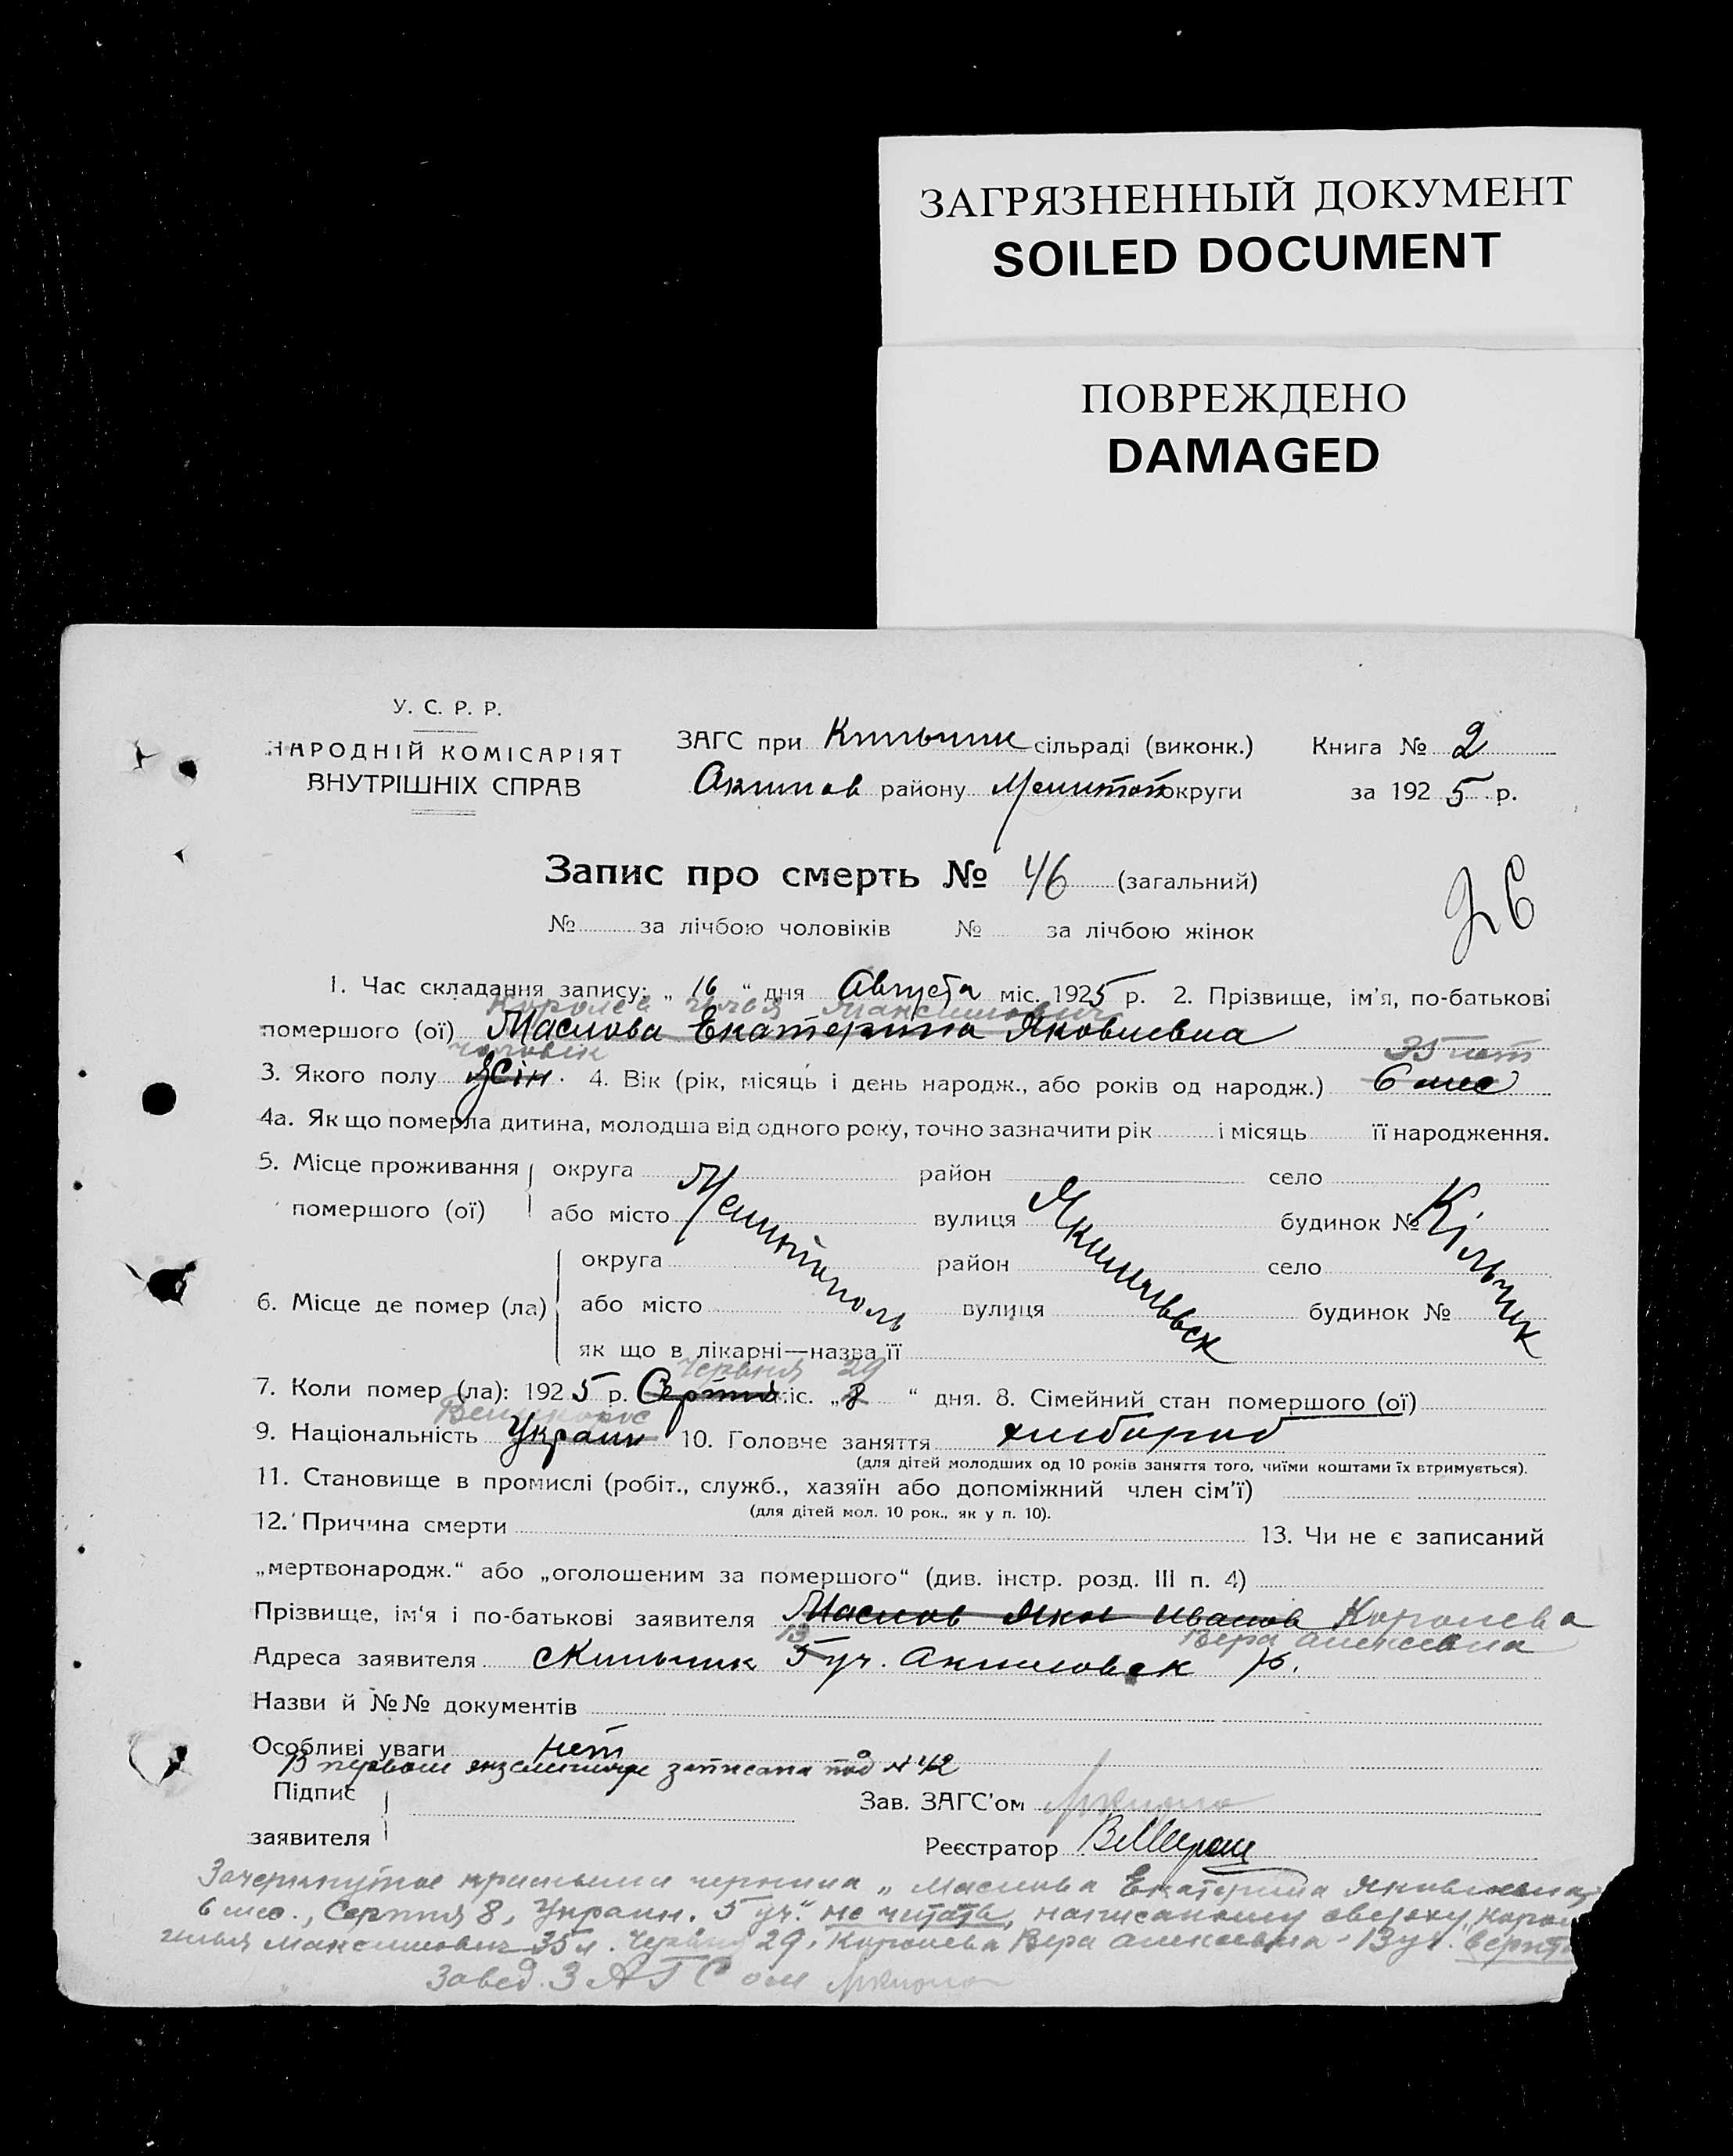 ЗАГРЯЗНЕННЫЙ ДОКУМЕНТ
SOILED DOCUMENT
ПОВРЕЖДЕНО
DAMAGED
У. С. Р. Р.
НАРОДНІЙ КОМІСАРІЯТ
ВНУТРІШНІХ СПРАВ
ЗАГС при Кильчик сільраді (виконк.) Книга № 2
Акимов району Мелитоп округи за 1925 р.
Запис про смерть № 46 (загальний)
26
№ за лічбою чоловіків № за лічбою жінок
1. Час складання запису: „ 16 “ дня Августа міс. 1925 р. 2. Прізвище, ім'я, по-батькові
Королев Илья Максимович
помершого (ої) Маслова Екатерина Яковлевна
чоловік 35 лет
3. Якого полу жін. 4. Вік (рік, місяць і день народж., або років од народж.) 6 мес
4а. Як що померла дитина, молодша від одного року, точно зазначити рік і місяць її народження.
5. Місце проживання округа район село
помершого (ої) або місто Мелитополь вулиця Якимівськ будинок № Кільчик
округа район село
6. Місце де помер (ла) або місто вулиця будинок №
як що в лікарні—назва її
Червня 29
7. Коли помер (ла): 1925 р. Серпня міс. „ 8 “ дня. 8. Сімейний стан помершого (ої)
Великорос
9. Національність Украин 10. Головне заняття хлібороб
(для дітей молодших од 10 років заняття того, чиїми коштами їх втримується).
11. Становище в промислі (робіт., служб., хазяїн або допоміжний член сім'ї)
(для дітей мол. 10 рок., як у п. 10).
12. Причина смерти 13. Чи не є записаний
„мертвонародж.“ або „оголошеним за помершого“ (див. інстр. розд. III п. 4)
Прізвище, ім'я і по-батькові заявителя Маслов Яков Иванов Королева
13 Вера Алексеевна
Адреса заявителя с Кильчик 5 уч. Акимовск р.
Назви й №№ документів
Особливі уваги нет
В первом экземпляре записана под № 42
Підпис
заявителя
Зав. ЗАГС'ом
Реєстратор
Зачеркнутое красными чернила „Маслова Екатерина Яковлевна,
6 мес., Серпня 8, Украин. 5 уч." не читать, написанному сверху „Корол
Илья Максимович 35 л. Червня 29, Королева Вера Алексеевна - 13 уч. верить
Завед. ЗАГСом